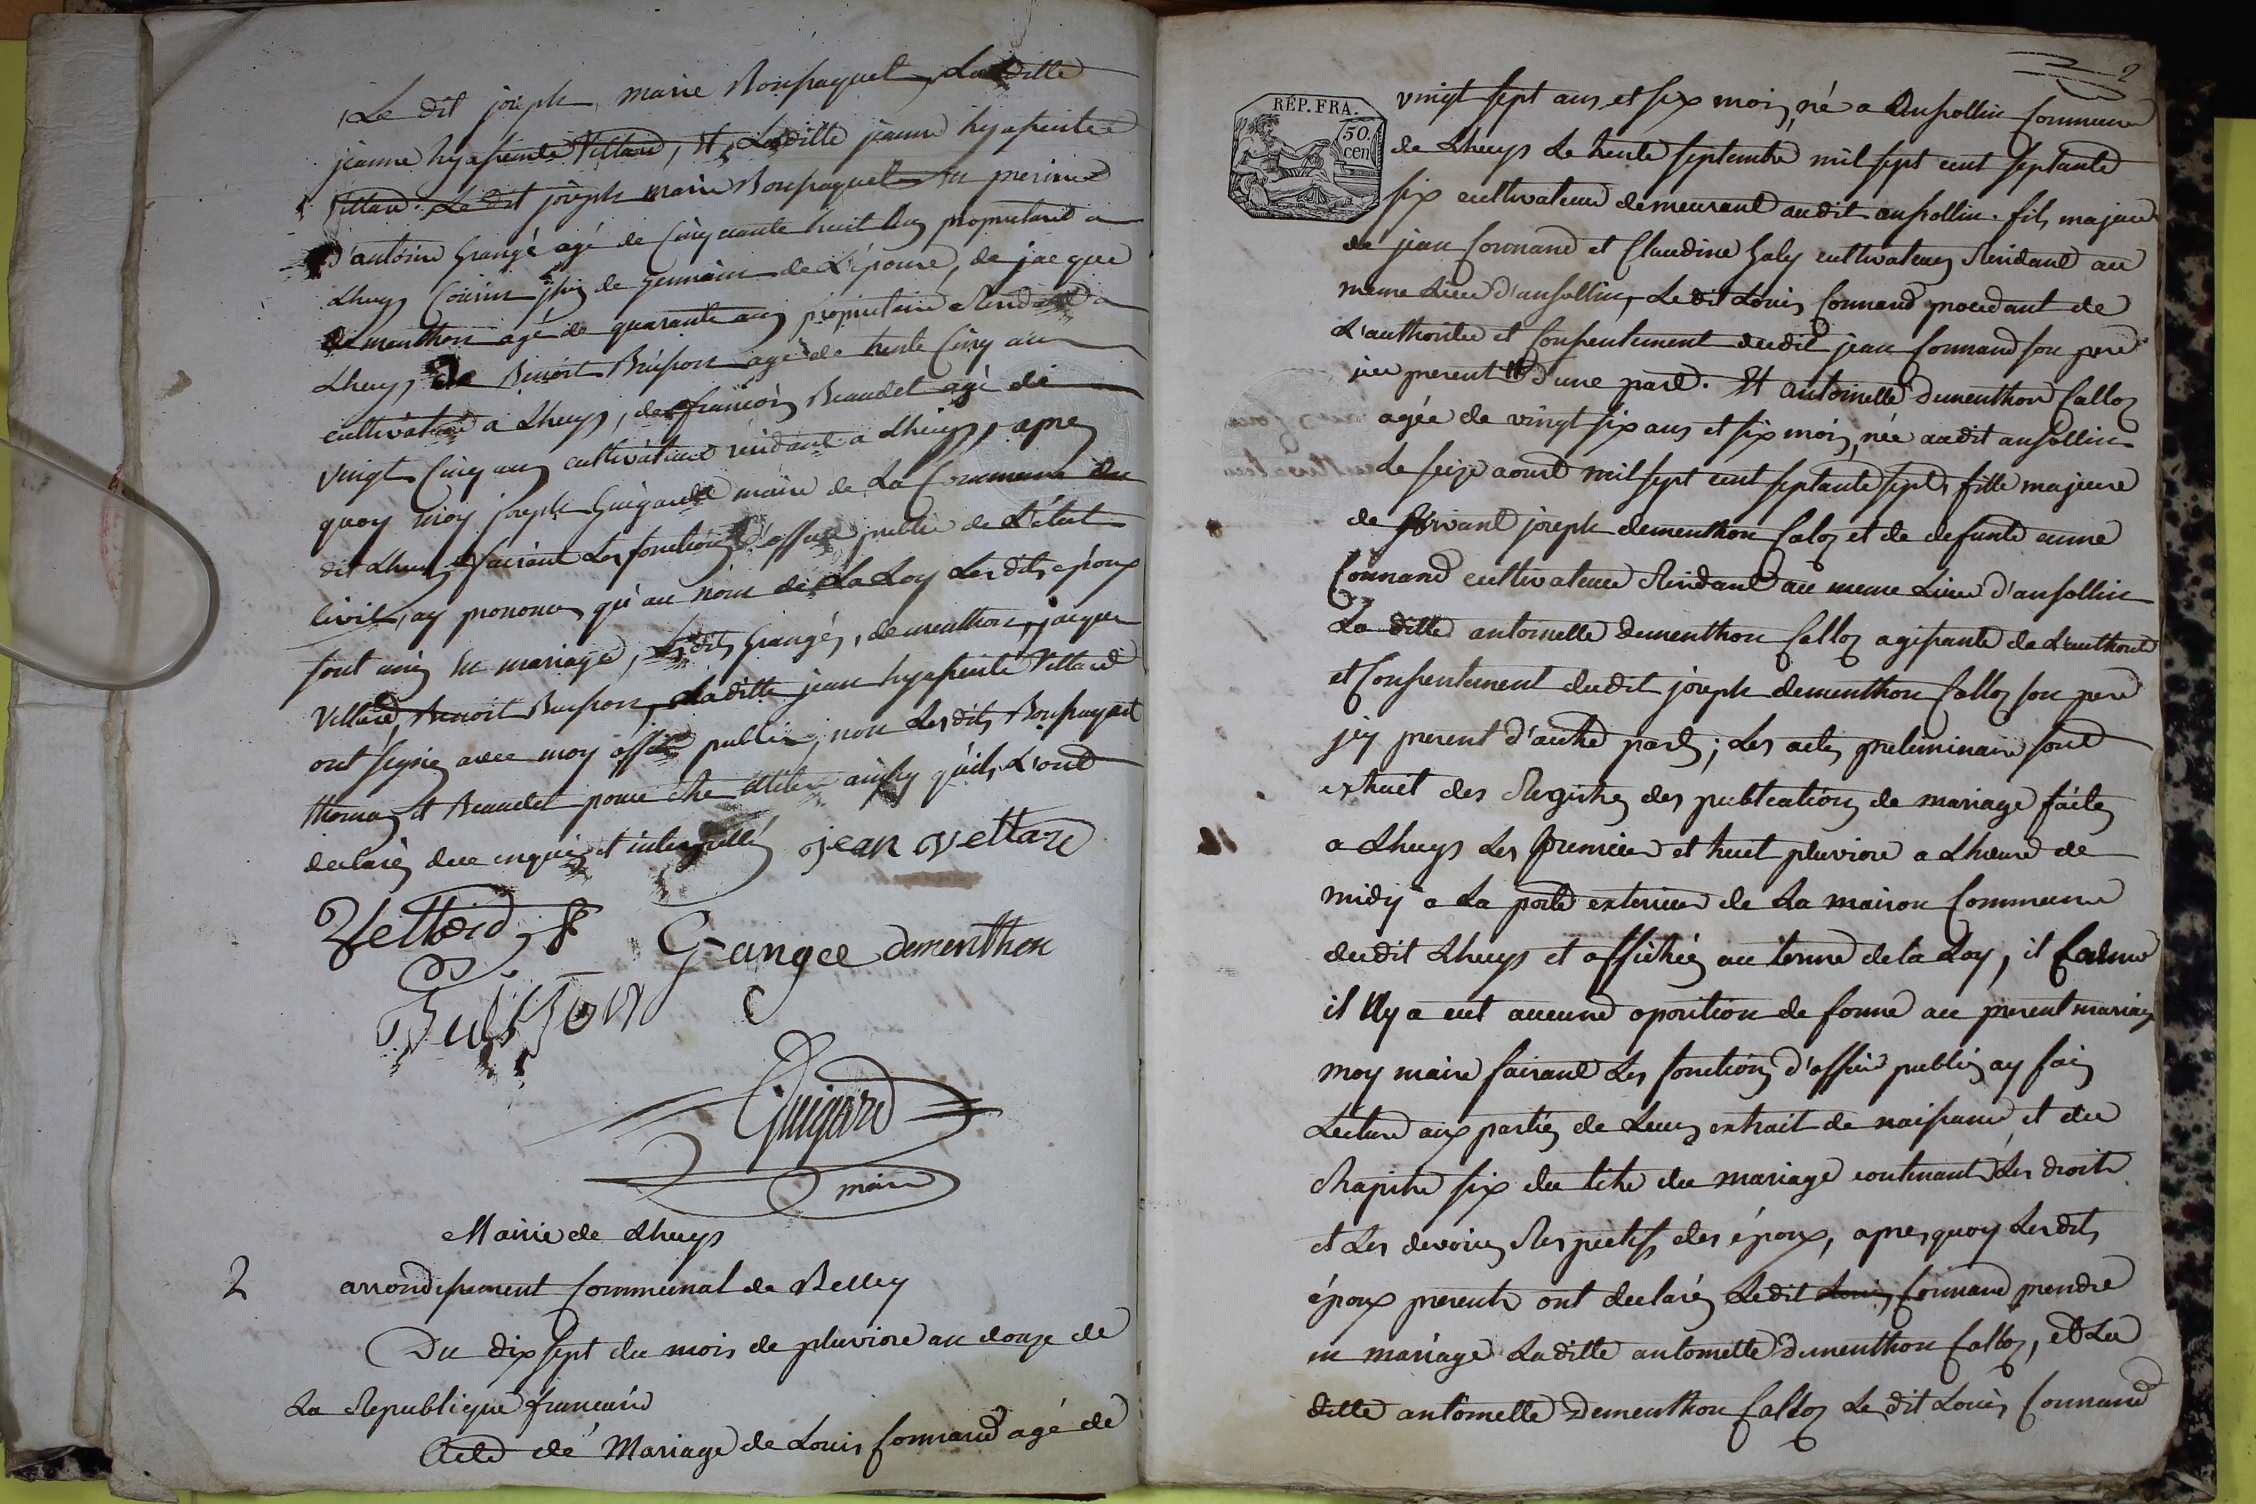 Le dit joseph marie Bonpaquet, La ditte
jeanne hyasseinte Vettard, Et Laditte jeanne hyasseinte
Vettard Le dit joseph marie Bonpaquet En presence
d'antoine Grangé agé de Cinquante huit ans proprietaire a
Lhuys Cousin de germain de L'épouse, de jacque
dementhon agé de quarante ans proprietaire Residant a
Lhuys, de Benoit Buisson agé de trente Cinq ans
cultivateur a Lhuys, de francois Beaudet agé de
vingt Cinq ans cultivateur residant a Lhuys, apres
quoy moy joseph Guigard maire de La Commune du
dit Lhuys faisant Les fonctions d'officier public de L'état
Civil, ay prononcé qu'au nom de La Loy Les dits époux
sont unis en mariage, Lesdits Grangé, dementhon, jacque
Vettard, Benoit Buisson, Laditte jean hyasseinte Vettard
ont signés avec moy officier public, non Lesdits Bonpaquet
thomas et Beaudet pour être illiteré ainsy qu'ils L'ont
declarés de ce enquis et interpellés jean Vettard
Vettard
Grangee dementhon
Buisson
Guigard
maire
Mairie de Lhuys
2 arrondissement Communal de Belley
Du dix sept du mois de pluviose an douze de
La Republique francaise
Acte de Mariage de Louis Connand agé de
2
RÉP. FRA.
50.
cen
vingt sept ans et six mois, né a Ansollin Commune
de Lhuys Le trente septembre mil sept cent septante
six cultivateur demeurant audit ansollin. fils majeur
de jean Connand et Claudine Galy cultivateurs Residant au
meme Lieu d'ansollin, Le dit Louis Connand procedant de
L'authorité et Consentement dudit jean Connand son pere
icy present d'une part. Et antoinette dementhon Calloz
agée de vingt six ans et six mois, née audit ansollin
Le seize aoust mil sept cent septante sept, fille majeure
de vivant joseph dementhon Caloz et de defunte anne
Connand cultivateur Residant au meme Lieu d'ansollin
La ditte antoinette dementhon Calloz agissante de L'authorité
et Consentement dudit joseph dementhon Calloz son pere
jcy present d'autre part; Les actes preliminaire sont
extrait des Registres des publications de mariage faites
a Lhuys Les premier et huit pluviose a L'heure de
midy a La porte exterieure de La maison Commune
dudit Lhuys et affichés au terme de la Loy, il
il N'y a eut aucune oposition de forme au present mariage
moy maire faisant Les fonctions d'officier public, ay fais
Lecture aux parties de Leurs extrait de naissance et du
Chapitre six du titre du mariage contenant Les droits
et Les devoirs Respectifs des époux, apres quoy Lesdits
époux presents ont declarés Ledit Louis Connand prendre
en mariage Laditte antoinette dementhon Calloz, et La
ditte antoinette Dementhon Calloz Le dit Louis Connand